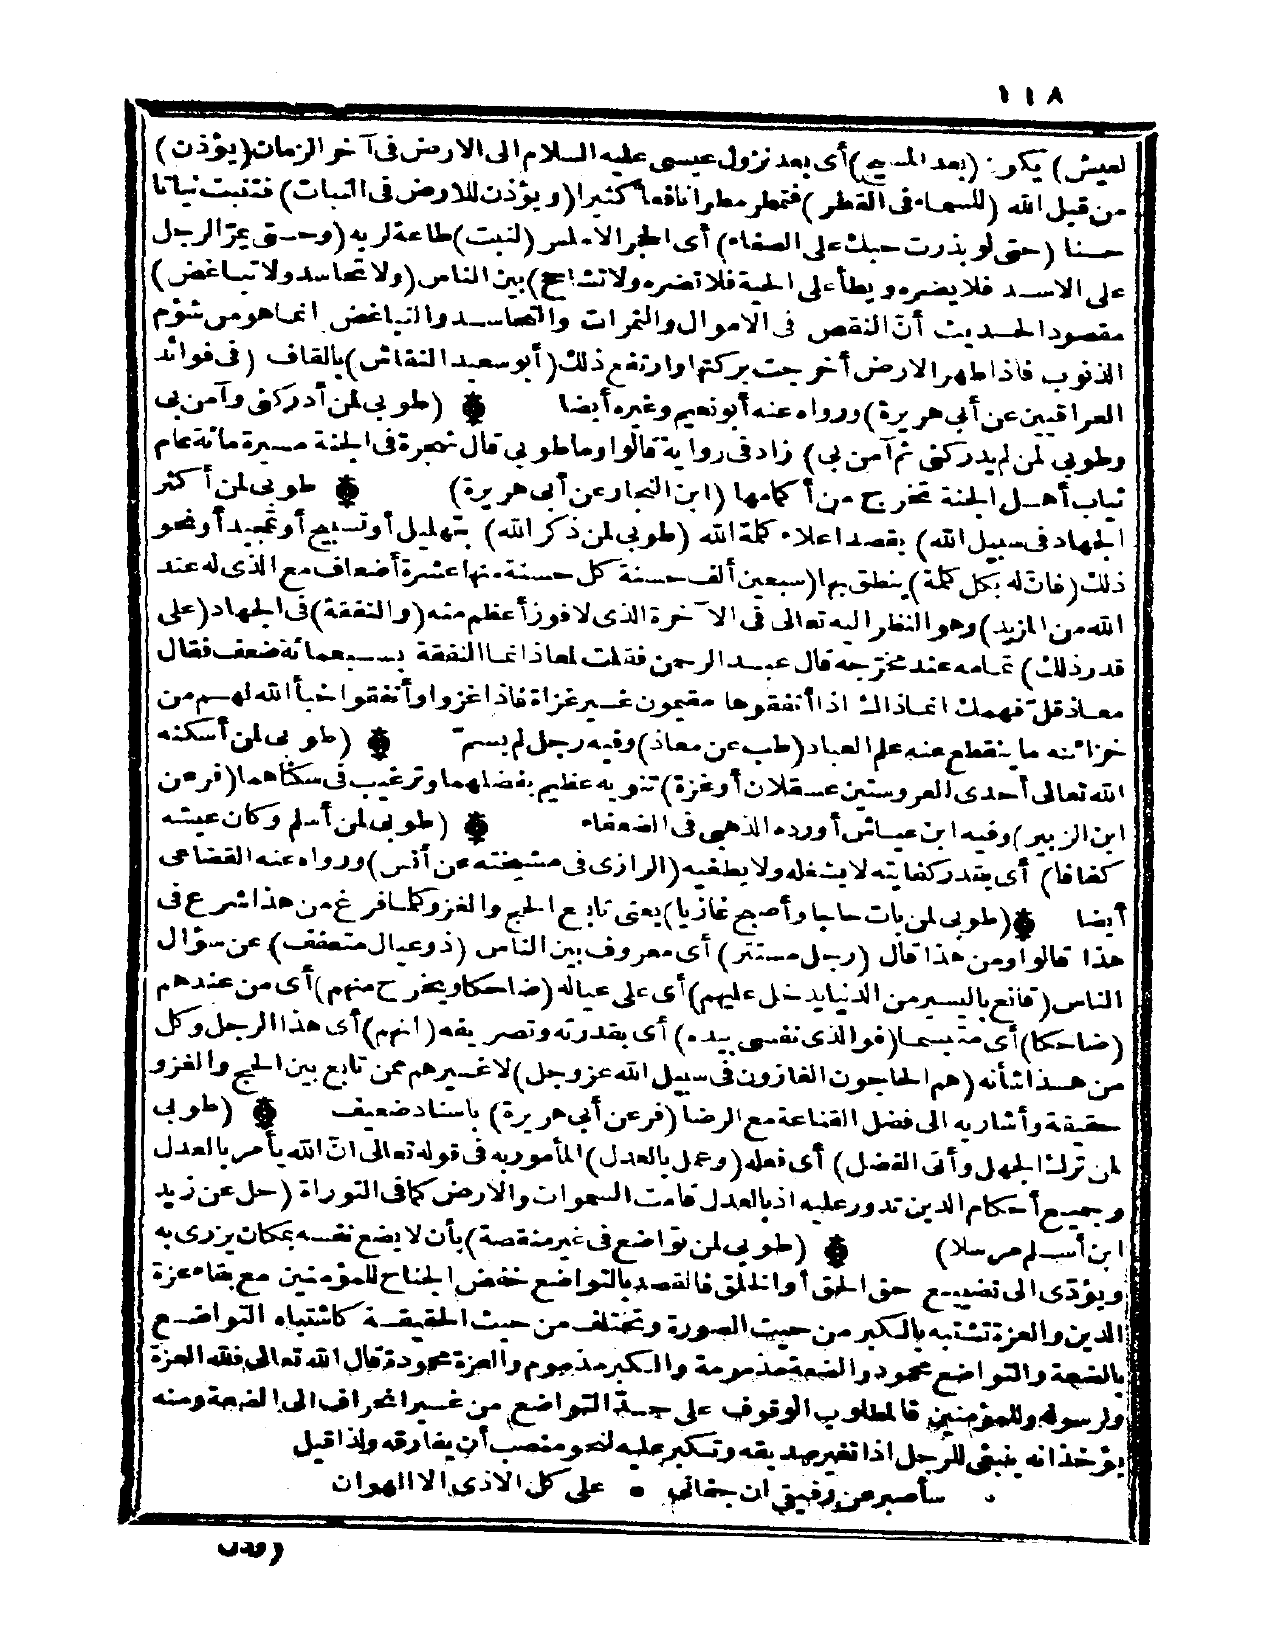 ١١٨
لعيش) يكون (بعد المسيح) أى بعد نزول عيسى عليه السلام الى الارض فى آخر الزمان (يؤذن)
من قبل الله (للسماء فى القطر) فتمطر مطرا نافعا كثيرا (ويؤذن للارض فى النبات) فتنبت نباتا
حسنا (حتى لو بذرت حبك على الصفاء) أى الحجر الاملس (لنبت) طاعة لربه (وحتى يمرّ الرجل
على الاسد فلا يضره ويطأ على الحية فلا تضره ولا تشاحح) بين الناس (ولا تحاسد ولا تباغض)
مقصود الحديث أنّ النقص فى الاموال والثمرات والتحاسد والتباغض انما هو من شؤم
الذنوب فاذا طهر الارض أخرجت بركتها وارتفع ذلك (أبو سعيد النقاش) بالقاف (فى فوائد
العراقيين عن أبى هريرة) ورواه عنه أبو نعيم وغيره أيضا (طوبى لمن أدركنى وآمن بى
وطوبى لمن لم يدركنى ثم آمن بى) زاد فى رواية قالوا وما طوبى قال شجرة فى الجنة مسيرة مائة عام
ثياب أهل الجنة تخرج من أكمامها (ابن النجار عن أبى هريرة) طوبى لمن أكثر
الجهاد فى سبيل الله) بقصد اعلاء كلمة الله (طوبى لمن ذكر الله) بتهليل أو تسبيح أو تمجيد أو نحو
ذلك (فانّ له بكل كلمة) ينطق بها (سبعين ألف حسنة كل حسنة منها عشرة أضعاف مع الذى له عند
الله من المزيد) وهو النظر اليه تعالى فى الآخرة الذى لا فوز أعظم منه (والنفقة) فى الجهاد (على
قدر ذلك) تمامه عند مخرّجه قال عبد الرحمن فقلت لمعاذ انما النفقة بسبعمائة ضعف فقال
معاذ قلّ فهمك انما ذاك اذا أنفقوها مقيمون غير غزاة فاذا غزوا وأنفقوا خبأ الله لهم من
خزائنه ما ينقطع عنه علم العباد (طب عن معاذ) وفيه رجل لم يسمّ (طوبى لمن أسكنه
الله تعالى أحدى العروستين عسقلان أو غزة) تنويه عظيم بفضلهما وترغيب فى سكناهما (فر عن
ابن الزبير) وفيه ابن عياش أورده الذهبى فى الضعفاء (طوبى لمن أسلم وكان عيشه
كفافا) أى بقدر كفايته لا يشغله ولا يطغيه (الرازى فى مشيخته عن أنس) ورواه عنه القضاعى
أيضا (طوبى لمن بات حاجا وأصبح غازيا) يعنى تابع الحج والغزو كلما فرغ من هذا شرع فى
هذا قالوا ومن هذا قال (رجل مستتر) أى معروف بين الناس (ذو عيال متعفف) عن سؤال
الناس (قانع باليسير من الدنيا يدخل عليهم) أى على عياله (ضاحكا ويخرج منهم) أى من عندهم
(ضاحكا) أى متبسما (فوالذى نفسى بيده) أى بقدرته وتصريفه (انهم) أى هذا الرجل وكل
من هذا شأنه (هم الحاجون الغازون فى سبيل الله عز وجل) لا غيرهم ممن تابع بين الحج والغزو
حقيقة وأشار به الى فضل القناعة مع الرضا (فر عن أبى هريرة) باسناد ضعيف (طوبى
لمن ترك الجهل وأتى الفضل) أى فعله (وعمل بالعدل) المأمور به فى قوله تعالى انّ الله يأمر بالعدل
وجميع أحكام الدين تدور عليه اذ بالعدل قامت السموات والارض كما فى التوراة (حل عن زيد
ابن أسلم مرسلا) (طوبى لمن تواضع فى غير منقصة) بأن لا يضع نفسه بمكان يزرى به
ويؤدّى الى تضييع حق الحق أو الخلق فالقصد بالتواضع خفض الجناح للمؤمنين مع بقاء عزة
الدين والعزة تشتبه بالكبر من حيث الصورة وتختلف من حيث الحقيقة كاشتباه التواضع
بالضعة والتواضع محمود والضعة مذمومة والكبر مذموم والعزة محمودة قال الله تعالى فلله العزة
ولرسوله وللمؤمنين فالمطلوب الوقوف على حدّ التواضع من غير انحراف الى الضعة ومنه
يؤخذ انه ينبغى للرجل اذا تغير صديقه وتكبر عليه لنحو منصب أن يفارقه ولذا قيل
سأصبر عن رفيقى ان جفانى • على كل الاذى الا الهوان